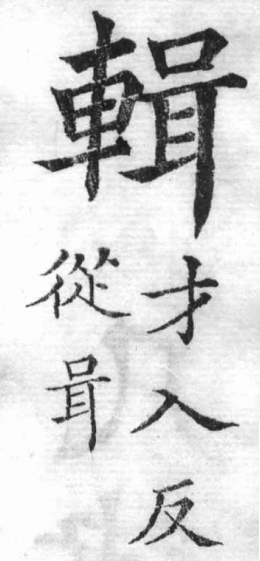 輯
才入反
從咠